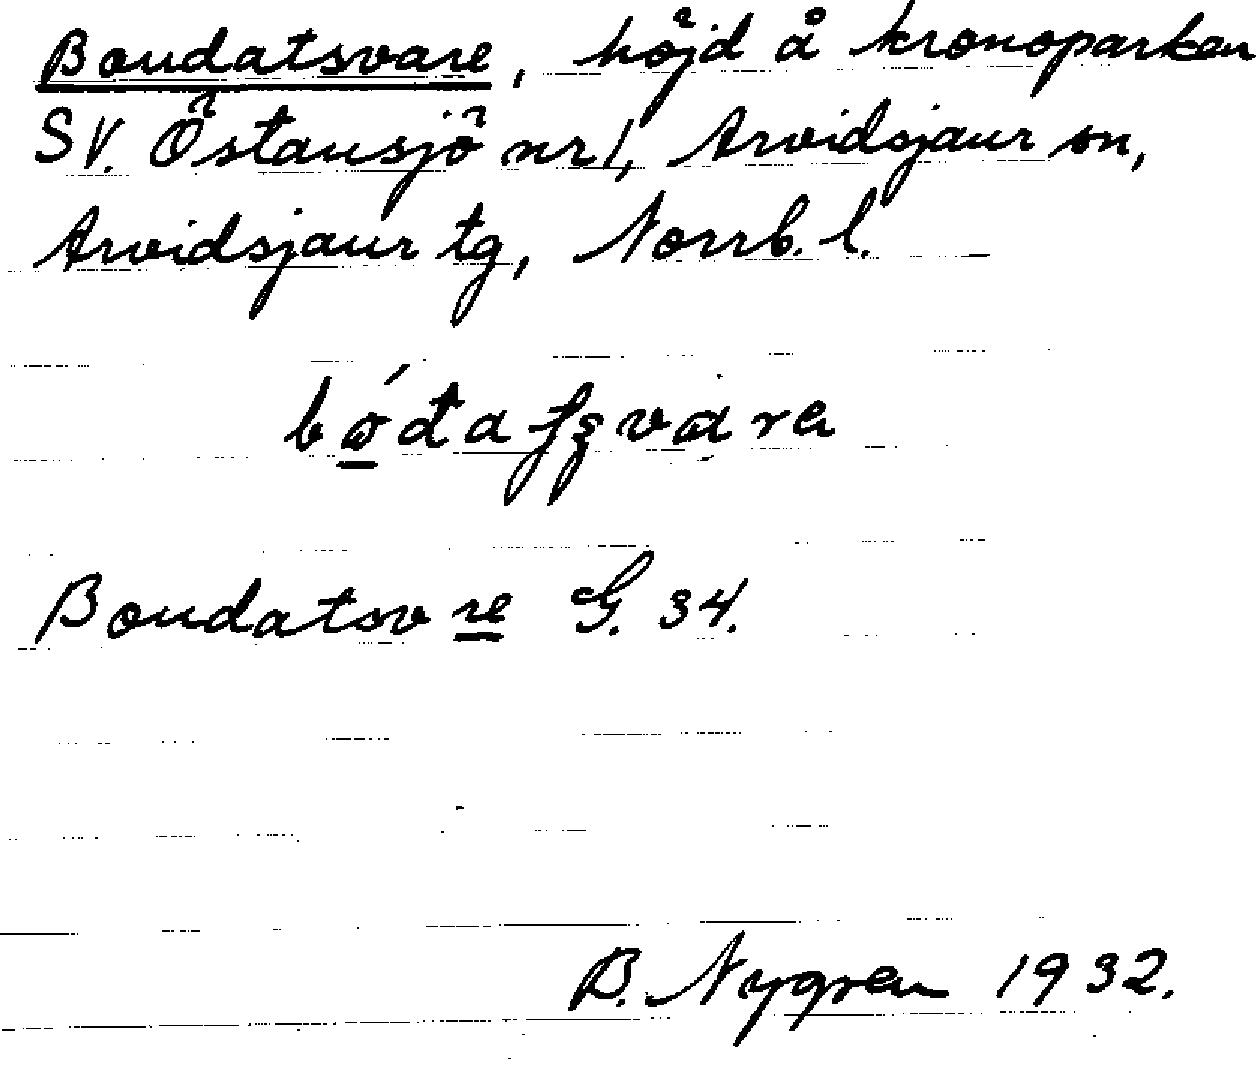 Boudatsvare, höjd å kronoparken
SV. Östansjö nr 1, Arvidsjaur sn,
Arvidsjaur tg, Norrb. l.
Boudatsvare G. 34.
B. Nygren 1932.